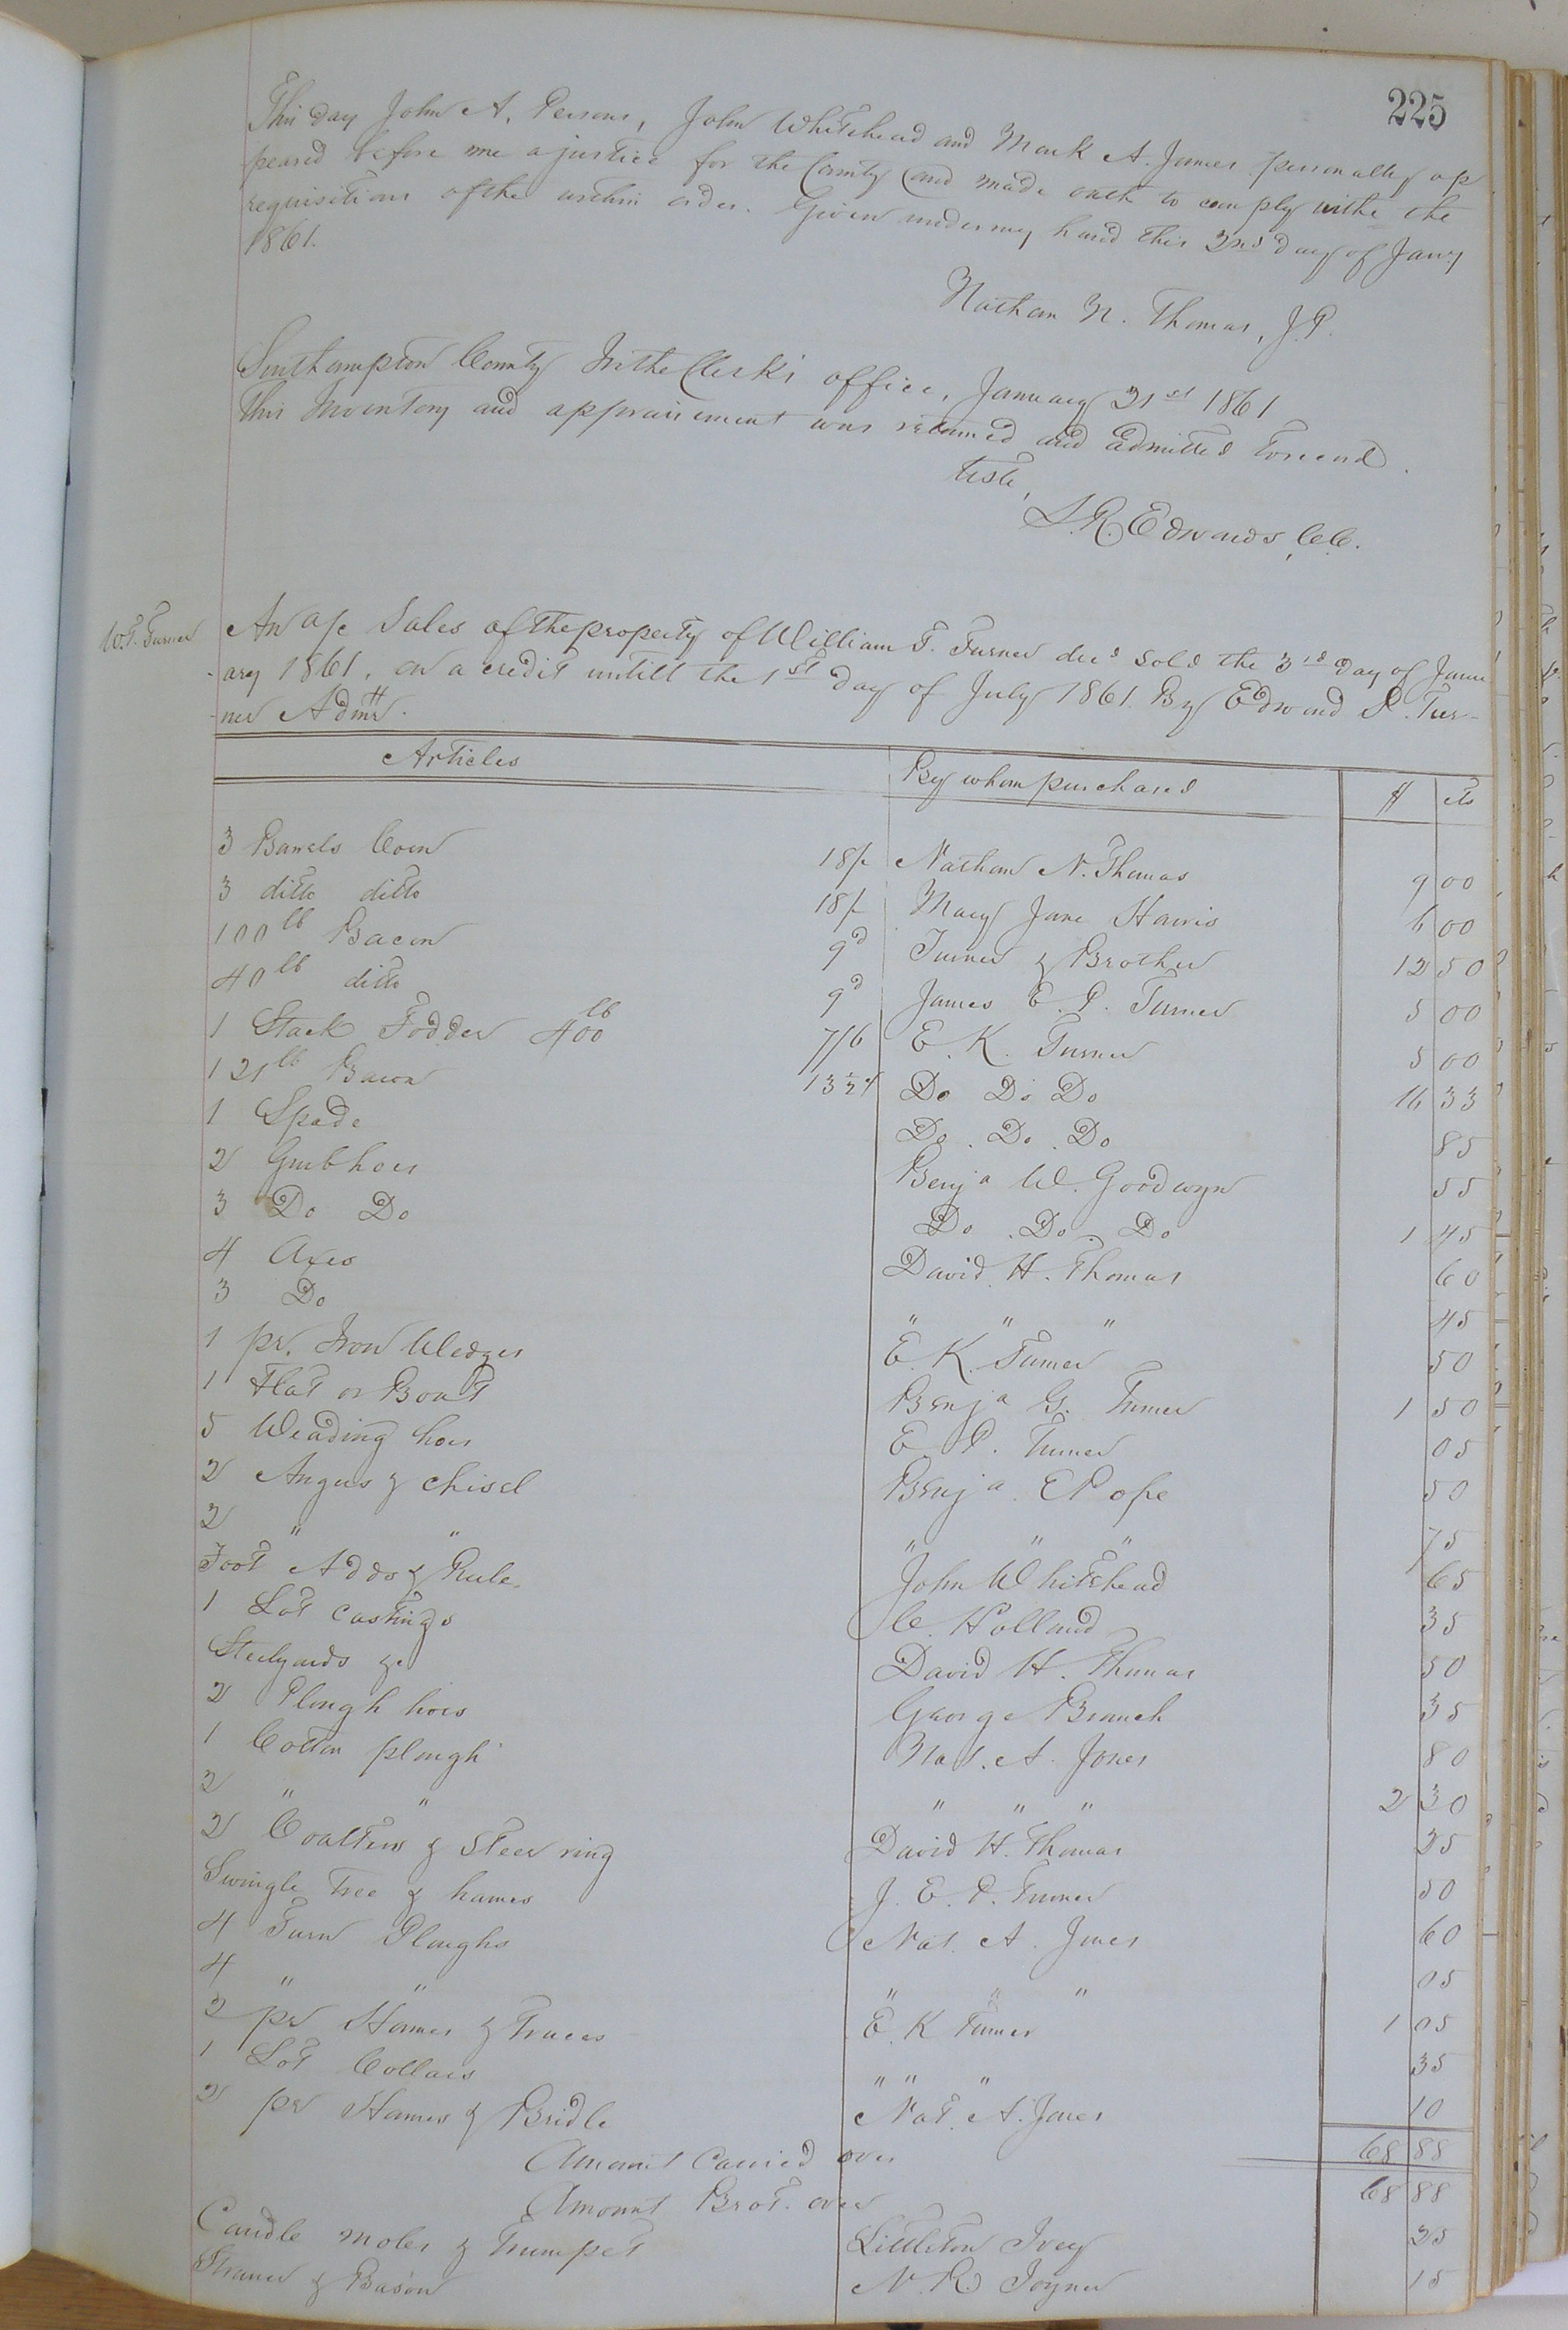 225
This day John A. Persons, John Whitehead and Mark A. James personally ap
peared before me a justice for the County and made oath to comply withe the
requisitions of the within order. Given under my hand this 2nd day of Jany
1861.
Nathan N. Thomas, J.P.
Southampton County In the Clerk's office, January 21st 1861
This Inventory and appraisement was returned and admitted to record.
Teste,
L.R. Edwards, C.C.
W.T. Turner
An a/c Sales of the property of William T. Turner decd sold the 3rd day of Janu
ary 1861, on a credit untill the 1st day of July 1861. By Edward P. Tur-
ner Admr.
Articles By whom purchased $ cts
3 Barrels Corn 18/- Nathan N. Thomas 9 00
3 ditto ditto 18/- Mary Jane Harris 6 00
100 lb Bacon 9d Turner & Brother 12 50
40 lb ditto 9d James E. P. Turner 5 00
1 Stack Fodder 400 lb 7/6 E. K. Turner 5 00
121 lb Bacon 13½ Do Do Do 16 33
1 Spade Do. Do. Do 85
2 Grub hoes Benja W. Goodwyn 55
3 Do Do Do. Do. Do 1 45
4 Axes David H. Thomas 60
3 Do " " " 45
1 pr. Iron Wedges E. K. Turner 50
1 Flat or Boat Benja G. Turner 1 50
5 Weading hoes E. P. Turner 05
2 Augurs & chisel Benja. E Pope 50
2 " " " " " 75
Foot Adds & Rule John Whitehead 65
1 Lot castings C. Holland 35
Steelyards &c David H. Thomas 50
2 Plough hoes George Branch 35
1 Cotton plough Nat. A. Jones 80
2 " " " " " 2 30
2 Coalters & Steer ring David H. Thomas 25
Swingle Tree & hames J. E. P. Turner 50
4 Turn Ploughs Nat. A. Jones 60
4 " " " " " 05
2 pr Hames & Traces E. K Turner 1 05
1 Lot Collars " " " 35
2 pr Hames & Bridle Nat. A. Jones 10
Amount Carried over 68 88
Amount Brot. over 68 88
Candle moles & Trumpet Littleton Ivey 25
Straner & Bason N. R. Joyner 15